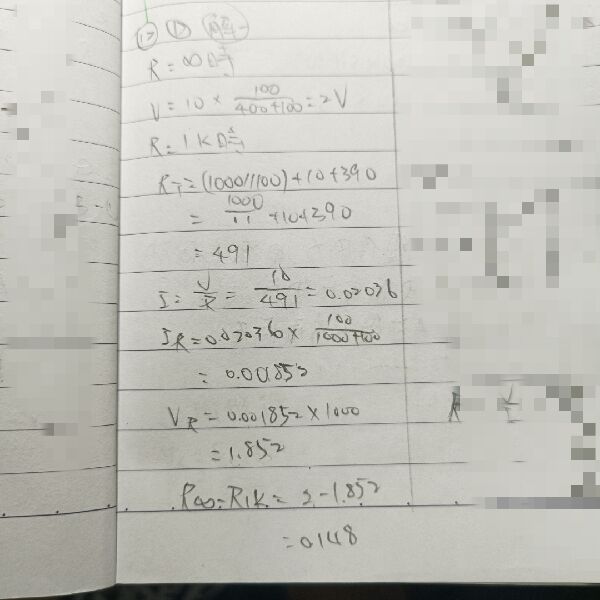 (2) ①
R = ∞ 日寺
V = 10 × 100/(400+100) = 2V
R = 1K 日寺
RT = (1000//100) + 10 + 390
= 1000/11 + 10 + 390
= 491
I = V/R = 10/491 = 0.02036
IR = 0.02036 × 100/(1000+100)
= 0.001852
VR = 0.001852 × 1000
= 1.852
R∞ - R1K = 2 - 1.852
= 0.148